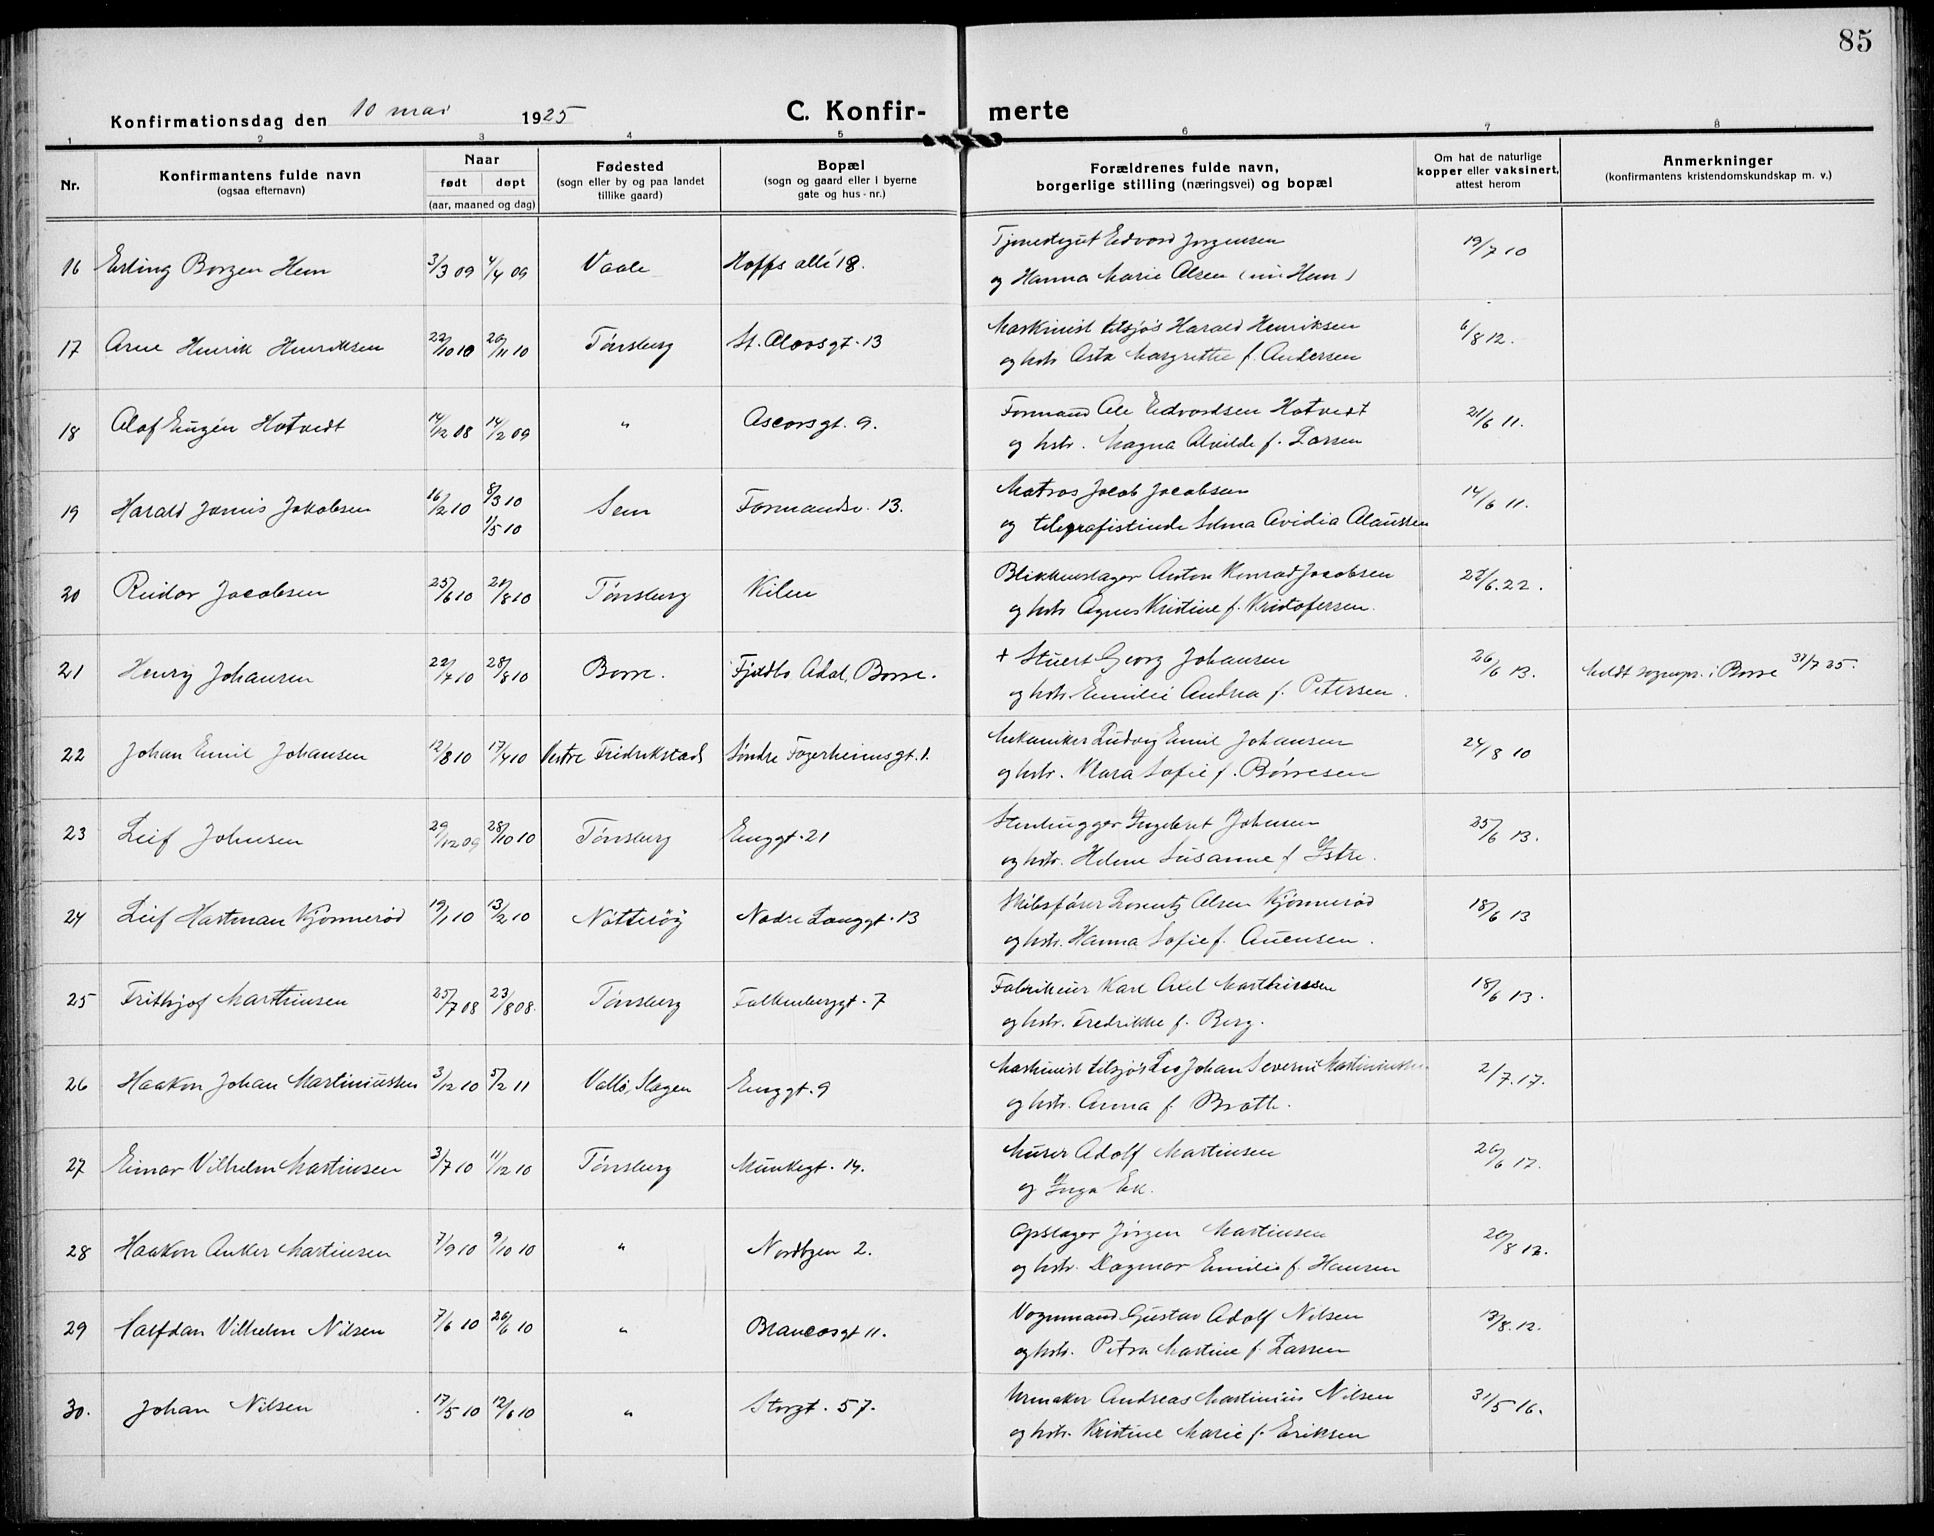 85
Konfirmationsdag den 10 mai 1925 C. Konfir- merte
1 2 3 4 5 6 7 8
Nr. Konfirmantens fulde navn (ogsaa efternavn) Naar født døpt (aar, maaned og dag) Fødested (sogn eller by og paa landet tillike gaard) Bopæl (sogn og gaard eller i byerne gate og hus-nr.) Forældrenes fulde navn, borgerlige stilling (næringsvei) og bopæl Om hat de naturlige kopper eller vaksinert, attest herom Anmerkninger (konfirmantens kristendomskundskap m. v.)
16 Erling Borgen Hem 3/3 09 4/4 09 Vaale Hoffs allé 18. Tjenestegut Edvard Jørgensen 19/7 10
og Hanna Marie Olsen (nu Hem)
17 Arne Henrik Henriksen 22/10 10 20/11 10 Tønsberg St. Olavsgt. 13 Maskinist tilsjøs Harald Henriksen 6/8 12.
og hstr. Asta Margrethe f. Andersen
18 Olaf Eugén Hotvedt 14/12 08 14/2 09 " Ascorsgt. 9. Formand Ole Edvardsen Hotvedt 21/6 11.
og hstr. Magna Alvilde f. Larsen
19 Harald Jamis Jakobsen 16/2 10 8/3 10 1/5 10 Sem Formandsv. 13. Matros Jacob Jacobsen 14/6 11.
og telegrafistinde Selma Ovidia Olaussen
20 Reidar Jacobsen 25/6 10 21/8 10 Tønsberg Kilen Blikkenslager Anton Konrad Jacobsen 28/6. 22.
og hstr. Agnes Kristine f. Kristofersen.
21 Henry Johansen 22/7 10 28/8 10 Borre. Fjeldbo Adal, Borre. + Stuert Georg Johansen 26/6 13. meldt sognepr. i Borre 31/7 25.
og hstr. Emilie Andrea f. Petersen.
22 Johan Emil Johansen 12/8 10 17/4 10 Vestre Fredrikstad Søndre Fagerheimsgt. 1. Mekaniker Ludvig Emil Johansen 24/8 10
og hstr. Klara Sofie f. Børresen
23 Leif Johnsen 29/12 09 28/10 10 Tønsberg Enggt. 21 Stenhugger Ingebret Johnsen 25/6 13.
og hstr. Helene Susanne f. Istre.
24 Leif Hartman Kjønnerød 19/1 10 13/2 10 Nøtterøy Nedre Langgt. 13 Skibsfører Lorentz Olsen Kjønnerød 18/6 13
og hstr. Hanna Sofie f. Auensen.
25 Frithjof Marthinsen 25/7 08 23/8 08. Tønsberg Falkenberggt. 7 Fabrikeier Karl Axel Marthinsen 18/6 13.
og hstr. Fredrikke f. Berg.
26 Haakon Johan Martiniussen 3/12 10 5/2 11 Vallø, Slagen Enggt. 9 Maskinist tilsjøs Leo Johan Severin Martiniussen 2/7. 17.
og hstr. Anna f. Brath.
27 Einar Vilhelm Martinsen 3/7 10 11/12 10 Tønsberg Munkegt. 14. Murer Adolf Martinsen 26/6 17.
og Inga Ek.
28 Haakon Anker Martinsen 7/9 10 9/10 10 " Nordbyen 2. Opslager Jørgen Martinsen 20/8 12.
og hstr. Dagmar Emilie f. Hansen
29 Halfdan Vilhelm Nilsen 7/6 10 26/6 10 " Brancosgt 11. Vognmand Gustav Adolf Nilsen 13/8. 12.
og hstr. Petra Martine f. Larsen
30. Johan Nilsen 17/5 10 12/6 10 " Storgt. 57. Urmaker Andreas Martinius Nilsen 31/5 16.
og hstr. Kristine Marie f. Eriksen